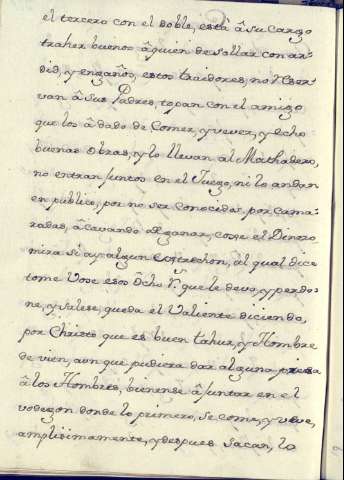 el tercero con el doble, està â su cargo
traher buenos â quien desollar con ar-
did, y engaños, estos traidores, no reser-
van â sus Padres, topan con el amigo
que los â dado de Comer, y vever, y echo
buenas obras, y lo llevan al Mathadero,
no entran juntos en el Juego, ni lo andan
en publico, por no ser conocidos por cama-
radas, âcavando de ganar, coxe el Dinero
mira si ay algun Cogrechon, al qual dice
tome Vose esos ôcho r.s que le devo, y perdo-
ne, y salese, queda el Valiente diciendo,
por Christo que es buen tahur, y Hombre
de vien, aun que pudiera dar alguna priesa
â los Hombres, bienense â juntar en el
vodegon donde lo primero, se come, y veve,
amplisimamente, y despues sacan, lo